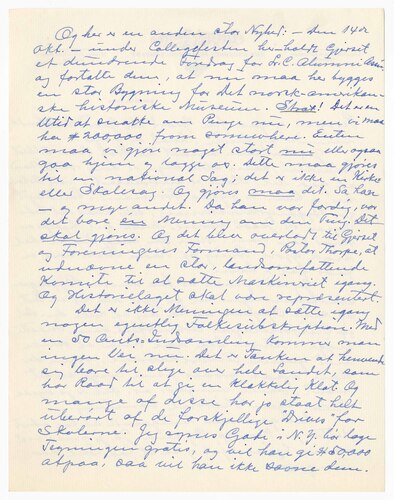 Og her er en anden stor Nyhed: - den 14de
Okt. - under Collegefesten her - holdt Gjerset
et dundrende Foredrag for Lr. C. Alumni Ass'n
og fortalte dem, at nu maa her bygges
en stor Bygning for Det norsk-amerikan-
ske historiske Museum. Strax! Det er en
Utid at snakke om Penge nu, men vi maa
ha $200,000 from somewhere. Enten
maa vi gjøre noget stort nu eller ogsaa
gaa hjem og lægge os. Dette maa gjøres
til en national Sag; det er ikke en Kirke
eller Skolesag. Og gjøres maa det. Sa han
- og mye andet. Da han var færdig, var
det bare en Mening om den Ting. Det
skal gjøres. Og det blev overladt til Gjerset
og Foreningens Formand, Pastor Thorpe, at
udnævne en stor, landsomfattende
Komite til at sætte Maskineriet igang.
Og Historielaget skal være repræsentert.
Det er ikke Meningen at sætte igang
nogen egentlig Folkesubskription. Med
en 50 Cents. Indsamling kommer man
ingen Vei nu. Det er Tanken at henvende
sig bare til slige over hele Landet, som
har Raad til at gi en klækkelig Klat. Og
mange af disse har jo staat helt
uberørt af de forskjellige "Drives" for
Skolerne. Jeg synes Gade i N.Y. bør lage
Tegningen gratis, og vil han gi $50,000
atpaa, saa vil han ikke savne dem.